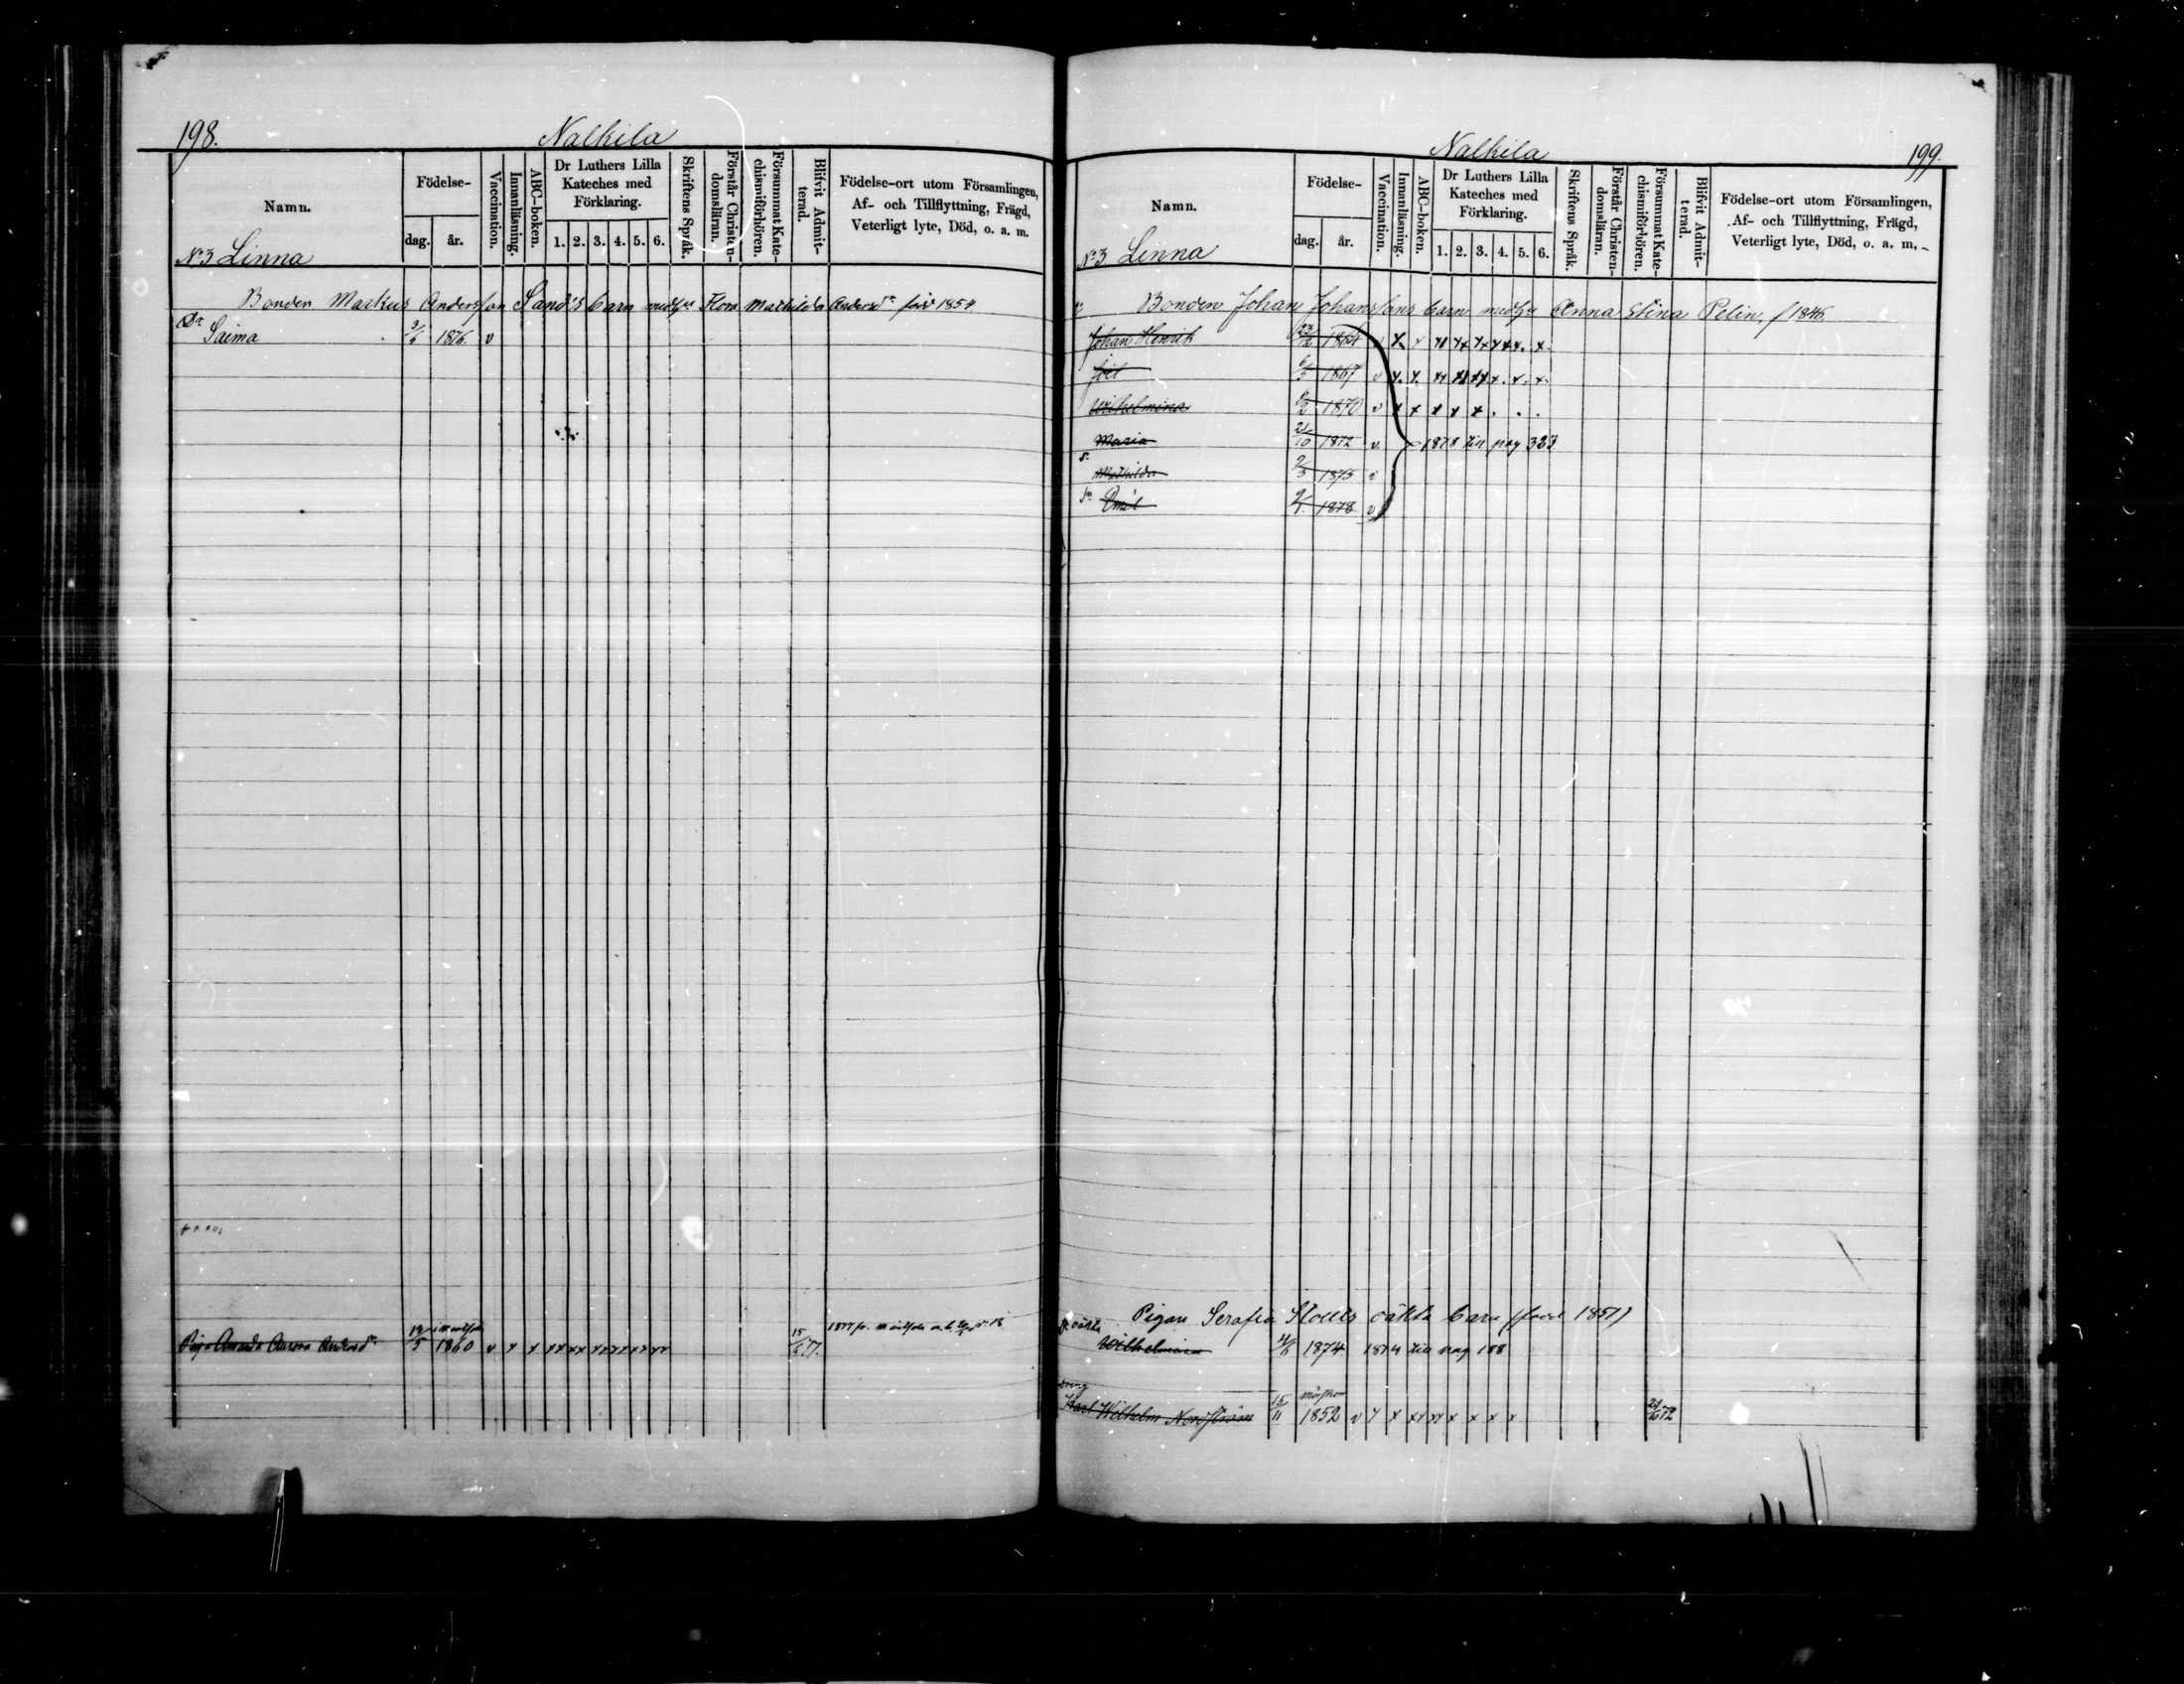 198.
Nalkila
Namn.
Födelse-
dag. år.
Vaccination.
Innanläsning.
ABC-boken.
Dr Luthers Lilla Kateches med Förklaring.
1. 2. 3. 4. 5. 6.
Skriftens Språk.
Förstår Christen-domsläran.
Försummat Kate-chismiförhören.
Blifvit Admit-terad.
Födelse-ort utom Församlingen,
Af- och Tillflyttning, Frägd,
Veterligt lyte, Död, o. a. m.
No 3 Linna
Bonden Markus Andersson Sand's barn med hu Flora Mathilda Andersdr född 1854
Dr
Saima 3/6 1876 v
Piga Amanda Aurora Andersdr 5 1860 v x x xx xx xx xx xx xx 15/6 77.
Nalkila
199.
Namn.
Födelse-
dag. år.
Vaccination.
Innanläsning.
ABC-boken.
Dr Luthers Lilla Kateches med Förklaring.
1. 2. 3. 4. 5. 6.
Skriftens Språk.
Förstår Christen-domsläran.
Försummat Kate-chismiförhören.
Blifvit Admit-terad.
Födelse-ort utom Församlingen,
Af- och Tillflyttning, Frägd,
Veterligt lyte, Död, o. a. m.
No 3 Linna
Bonden Johan Johanssons barn med hu Anna Stina Pelin, f 1846
Johan Henrik 23/12 1864
1867 v
Wilhelmina 1870 v x x x x x . . .
Maria 21/10 1872 v. 1878 till pag 323
Mathilda 2/3 1875
Emil 2/1 1878 v
Pigan Serafia oäkta barn (född 1851)
Wilhelmina 1874 1874 till pag 188
dreng
Karl Wilhelm Nordström 15/11 1852 v x x xx xx x x x x 72